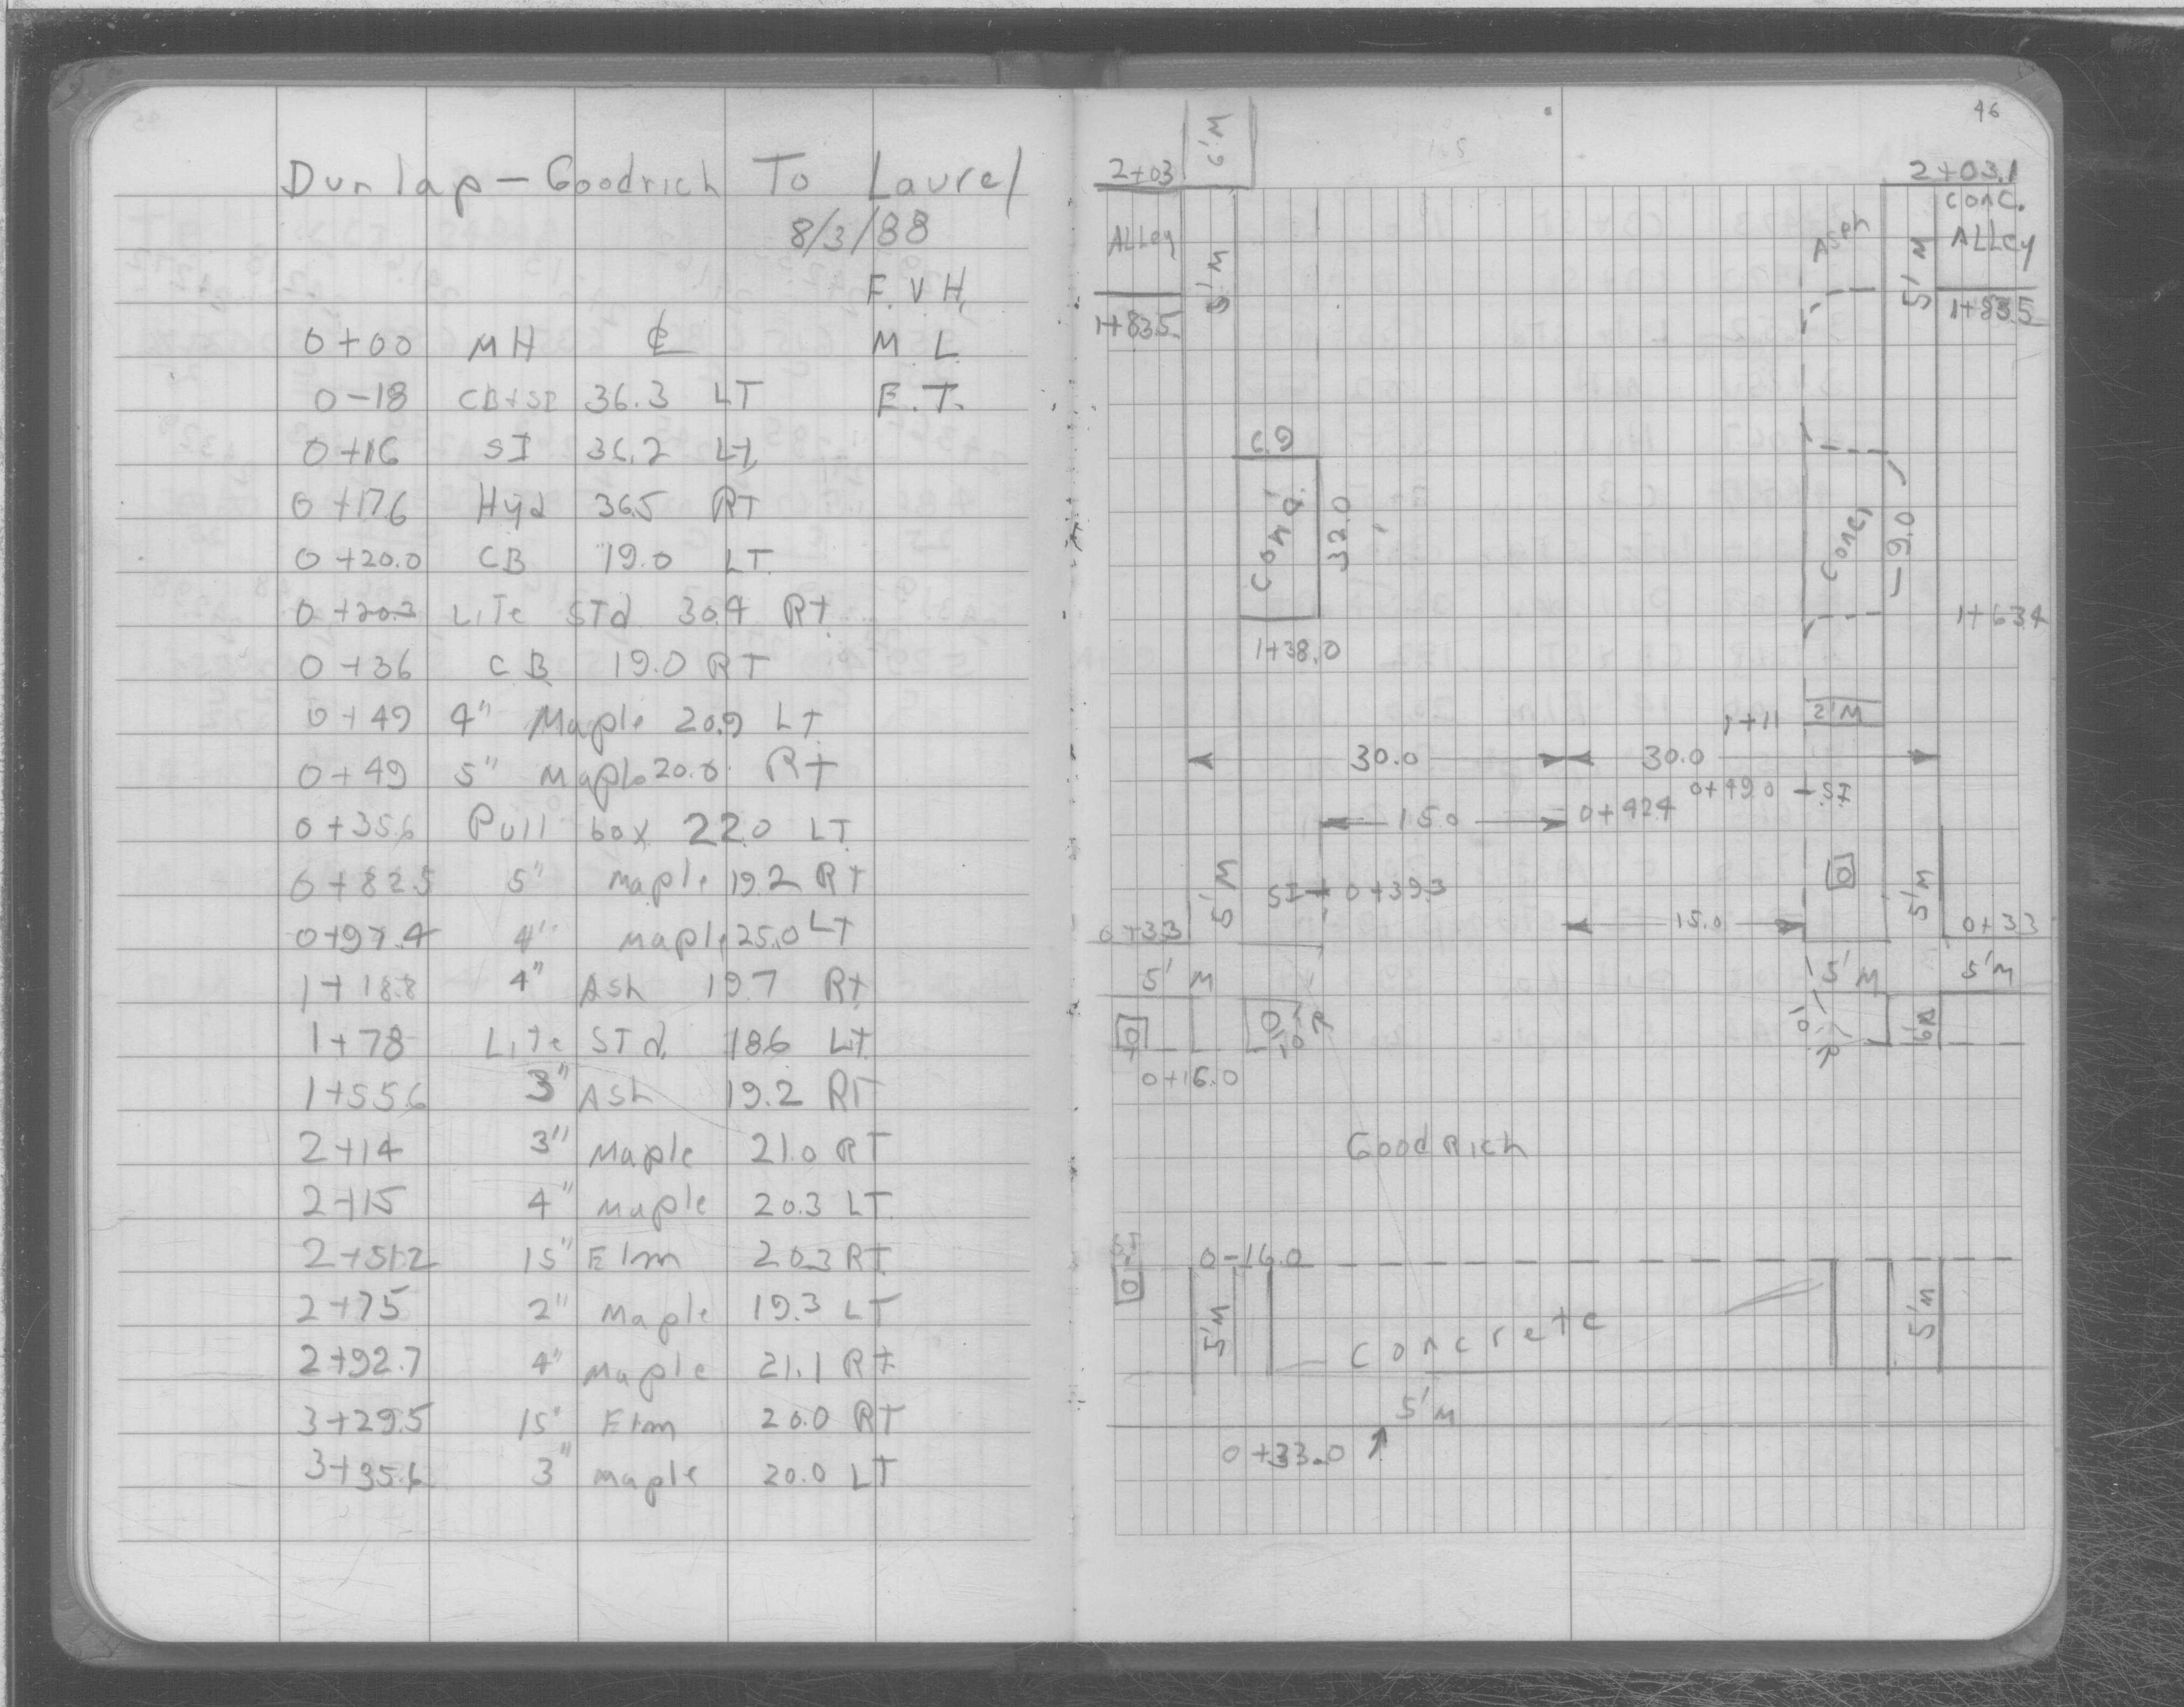 Dunlap - Goodrich To Laurel
8/3/88
F. V H,
0+00 MH ℄ M L
0-18 CB+SI 36.3 LT E.T.
0+16 SI 36.2 Lt
0+17.6 Hyd 36.5 RT
0+20.0 CB 19.0 LT.
0+20.3 Lite STd 30.4 Rt
0+36 CB 19.0 RT
0+49 4" Maple 20.9 LT
0+49 5" Maple 20.8 Rt
0+35.6 Pull box 22.0 LT
0+82.5 5" maple 19.2 RT
0+97.4 4" maple 25.0 LT
1+18.8 4" Ash 19.7 Rt
1+78 Lite STd. 18.6 Lt
1+55.6 3" Ash 19.2 RT
2+14 3" maple 21.0 RT
2+15 4" maple 20.3 LT
2+51.2 15" Elm 20.3 RT
2+75 2" maple 19.3 LT
2+92.7 4" maple 21.1 Rt
3+29.5 15" Elm 20.0 RT
3+35.6 3" maple 20.0 LT
46
2+03 6'M 2+03.1
Alley 6'M Asph 5'M conc. Alley
1+83.5 1+83.5
6.9
32.0 Conc, 9.0
1+38.0 1+63.4
1+11 2'M
30.0 30.0
0+49.0 - SI
15.0 0+42.4
5'M SI 0+39.3 5'M
0+33 15.0 0+33
5'M 5'M 5'M
10'R 10'R 6'M
0+16.0
Goodrich
SI 0-16.0
5'M Concrete 5'M
5'M
0+33.0